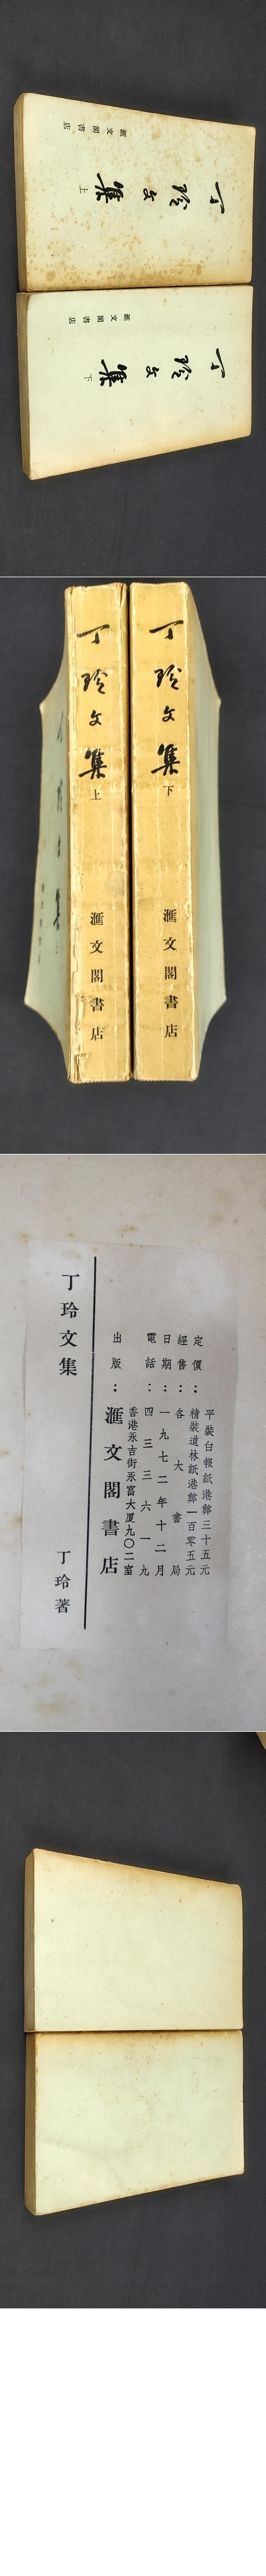 丁玲文集 上
滙文閣書店
丁玲文集 下
滙文閣書店
丁玲文集 上 滙文閣書店
丁玲文集 下 滙文閣書店
丁玲文集 丁玲著
出版：滙文閣書店
香港永吉街永富大厦九〇二室
電話：四三三六一九
日期：一九七二年十二月
經售：各大書局
定價：精裝道林紙港幣一百零五元
平裝白報紙港幣三十五元